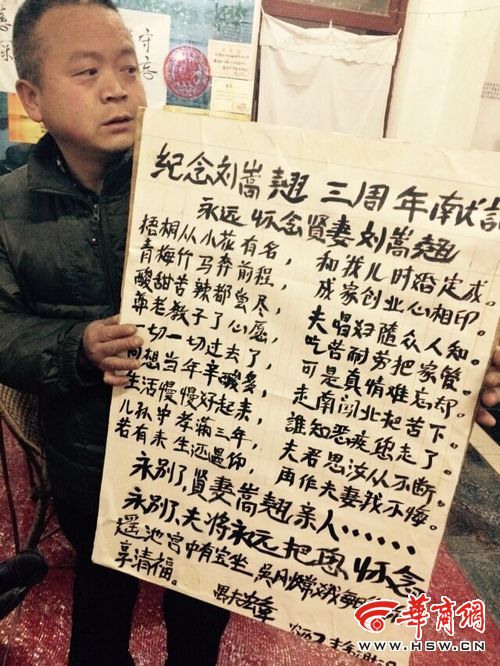 守
纪念刘嵩翘 三周年献
永远怀念贤妻刘嵩翘
梧相从小花有名， 和我儿时婚定成。
青梅竹马奔前程， 成家创业心相印。
酸甜苦辣都尝尽， 夫唱妇随众人知。
尊老教子了心愿， 吃苦耐劳把家管。
一切一切过去了， 可是真情难忘却。
回想当年辛酸多， 走南闯北把苦下。
生活慢慢好起来， 誰知恶疾您走了。
儿孙守孝满三年， 夫君思汝从不断。
若有来生还遇仰， 再作夫妻我不悔。
永别了，贤妻嵩翘亲人……
永别了，夫将永远把恩怀念
遥池宫中有宝坐，吴刚嫦娥舞
享清福。
愚夫
华商网
WWW.HSW.CN